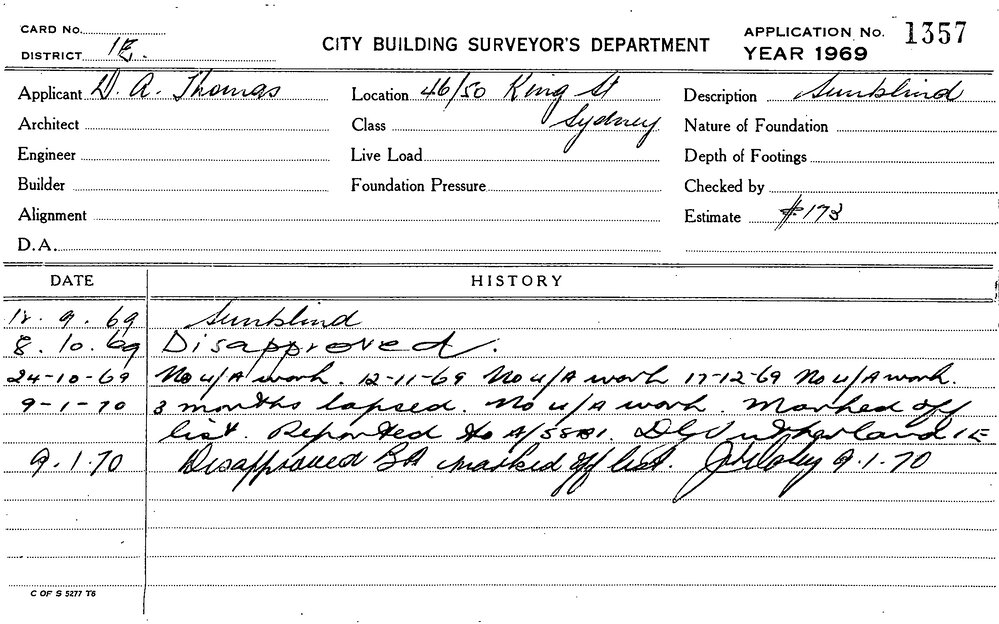 CARD No.
DISTRICT 1E.
CITY BUILDING SURVEYOR'S DEPARTMENT
APPLICATION No. 1357
YEAR 1969
Applicant D. A. Thomas
Location 46/50 King St
Sydney
Description Sunblind
Architect
Class
Nature of Foundation
Engineer
Live Load
Depth of Footings
Builder
Foundation Pressure
Checked by
Alignment
Estimate $173
D.A.
DATE HISTORY
18. 9. 69 Sunblind
8. 10. 69 Disapproved.
24-10-69 No u/A work. 12-11-69 No u/A work 17-12-69 No u/A work.
9-1-70 3 months lapsed. No u/A work. Marked off
list. Reported to A/SSB1. Sutherland 1E
9.1.70 Disapproved BA marked off list. 9.1.70
C OF S 5277 T6